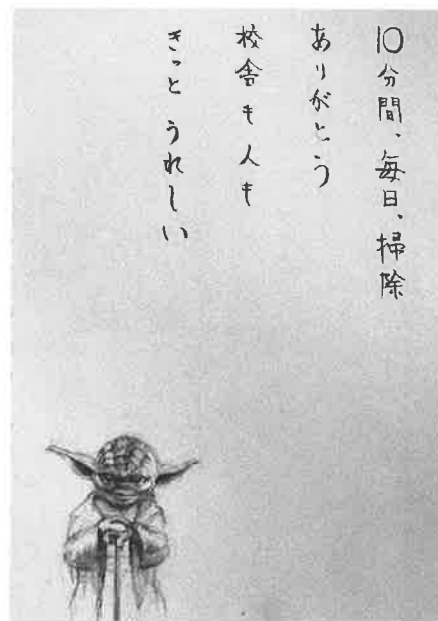 10分間、毎日、掃除
ありがとう
校舎も人も
きっとうれしい